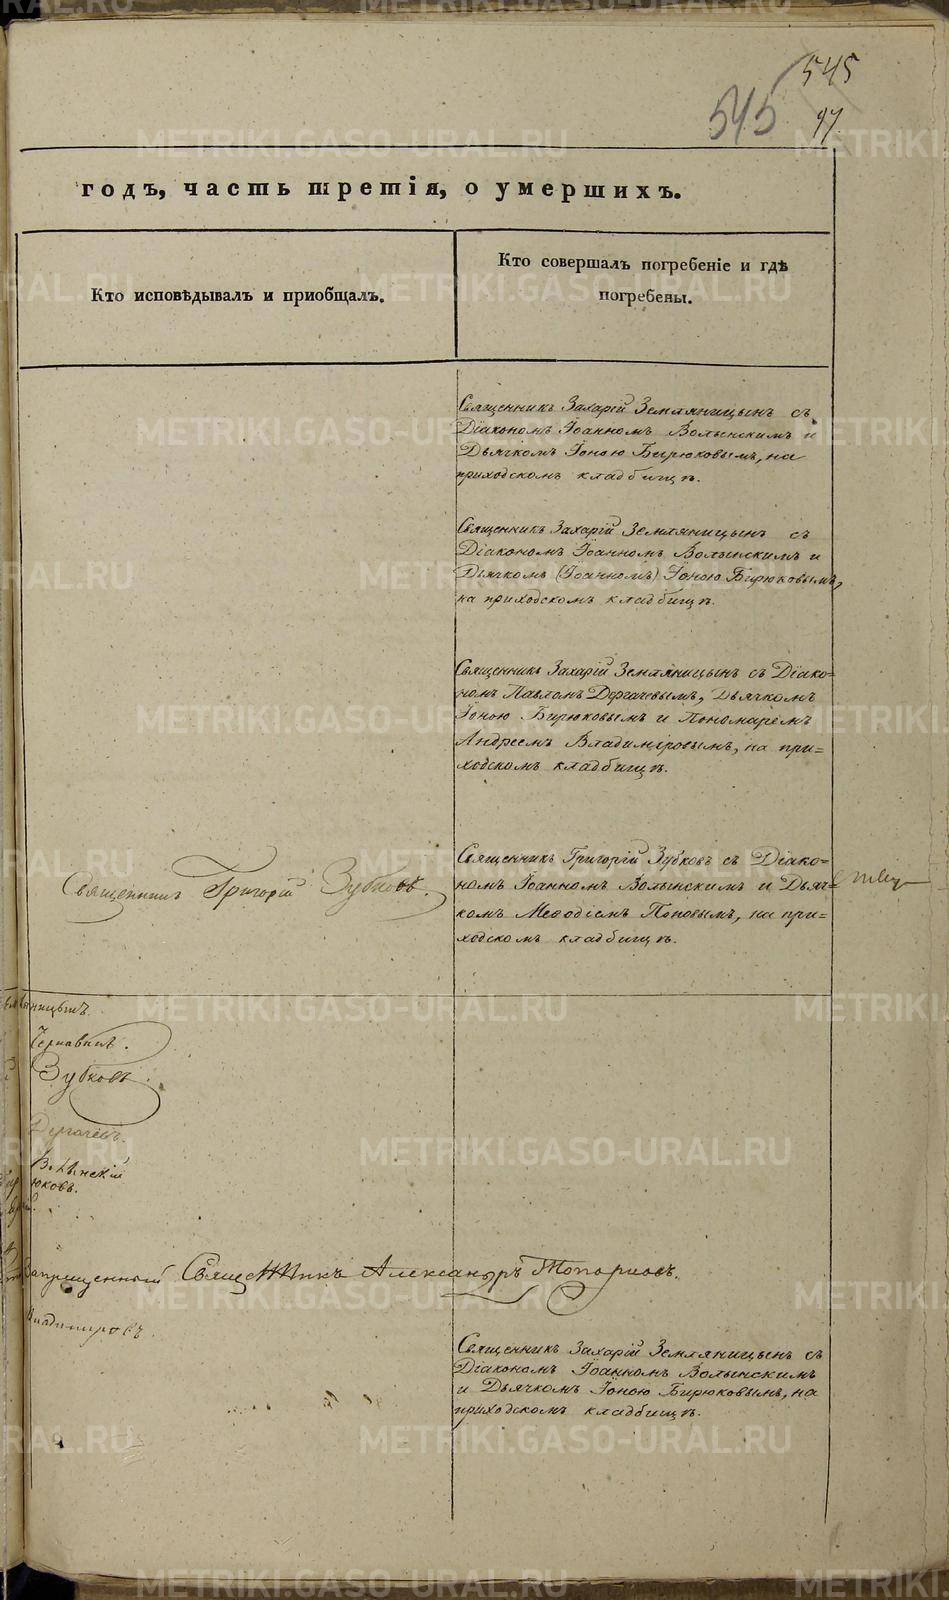 545
545 97
годъ, часть третія, о умершихъ.
Кто исповѣдывалъ и приобщалъ.
Кто совершалъ погребеніе и гдѣ
погребены.
Священникъ Захарій Земляницынъ съ
Діакономъ Іоанномъ Волынскимъ и
Дьячкомъ Іоною Бирюковымъ, на
приходскомъ кладбищѣ.
Священникъ Захарій Земляницынъ съ
Діакономъ Іоанномъ Волынскимъ и
Дьячкомъ (Іоанномъ) Іоною Бирюковымъ,
на приходскомъ кладбищѣ.
Священникъ Захарій Земляницынъ съ Діако-
номъ Павломъ Дергачевымъ, Дьячкомъ
Іоною Бирюковымъ и Пономаремъ
Андреемъ Владиміровымъ, на при-
ходскомъ кладбищѣ.
Священникъ Григорій Зубковъ.
Священникъ Григорій Зубковъ съ Діако-
номъ Іоанномъ Волынскимъ и Дьяч-
комъ Меѳодіемъ Поповымъ, на при-
ходскомъ кладбищѣ.
Земляницынъ.
Чернавинъ.
Зубковъ.
Дергачевъ.
Волынскій
юковъ.
Запрещенный Священникъ Александръ Топорковъ.
Владиміровъ.
Священникъ Захарій Земляницынъ съ
Діакономъ Іоанномъ Волынскимъ
и Дьячкомъ Іоною Бирюковымъ, на
приходскомъ кладбищѣ.
METRIKI.GASO-URAL.RU